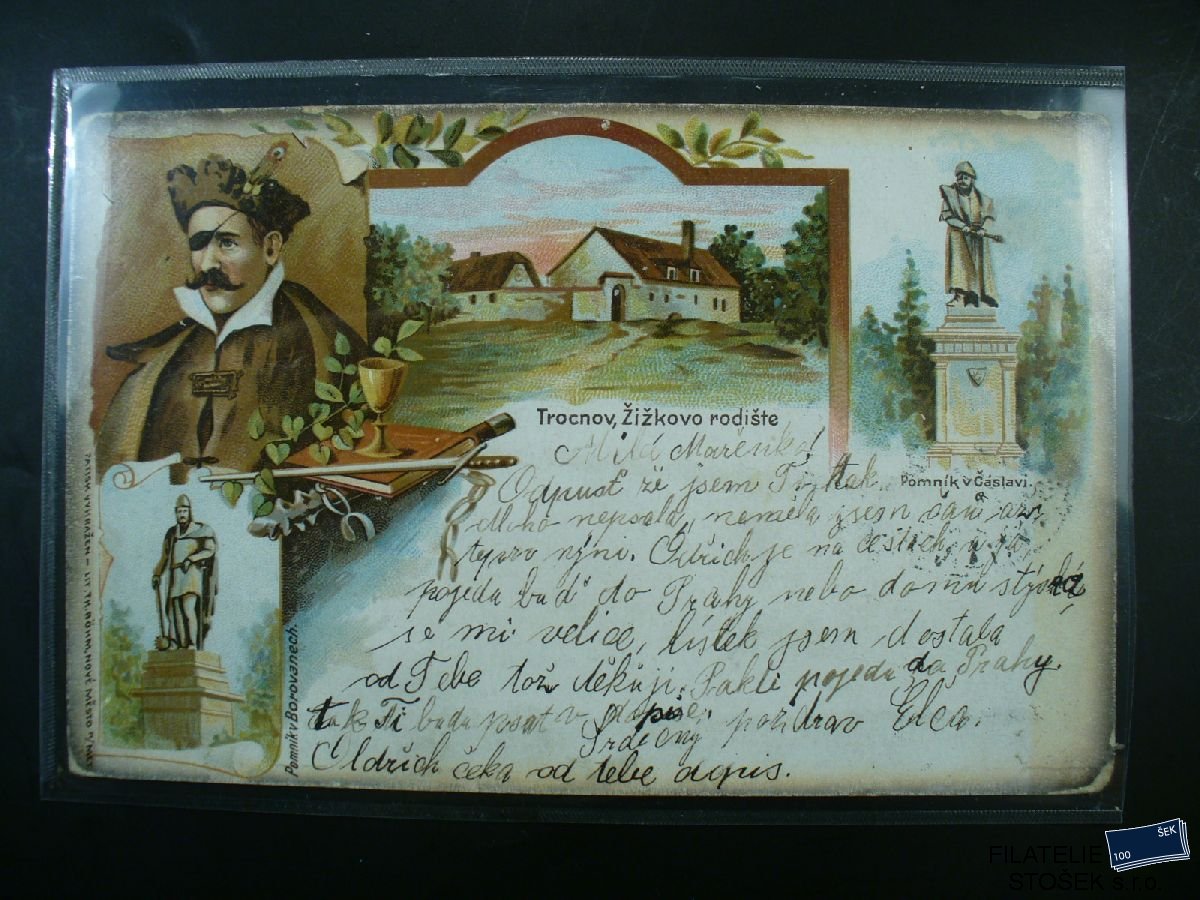 Trocnov, Žižkovo rodiště
Pomník v Čáslavi.
Pomník v Borovanech.
Milá Mařenko!
Odpusť že jsem Ti tak
dlouho nepsala, neměla jsem čas až
teprv nyní. Oldřich je na cestách, a já
pojedu buď do Prahy nebo domů stýská
se mi velice, lístek jsem dostala
od Tebe tož děkuji. Pakli pojedu do Prahy
tak Ti budu psat v
Srdečný pozdrav Elca.
Oldřich čeka od tebe dopis.
FILATELIE
STOŠEK s.r.o.
100 ŠEK